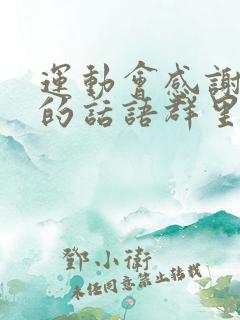 運動會感謝
的話語群里
鄧小衛
未經同意禁止轉載